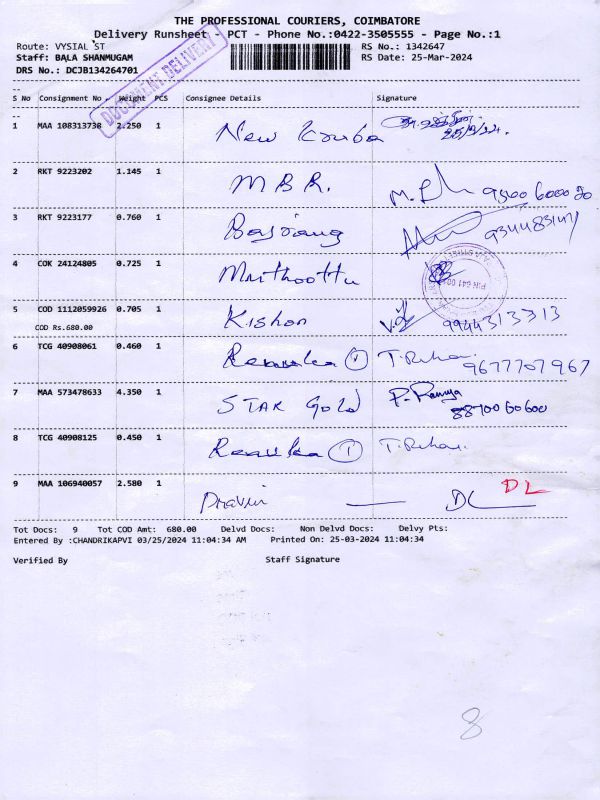 THE PROFESSIONAL COURIERS, COIMBATORE
Delivery Runsheet - PCT - Phone No.:0422-3505555 - Page No.:1
Route: VYSIAL ST RS No.: 1342647
Staff: BALA SHANMUGAM RS Date: 25-Mar-2024
DRS No.: DCJB134264701
DOCUMENT DELIVERY
S No Consignment No Weight PCS Consignee Details Signature
1 MAA 108313738 2.250 1 New
2 RKT 9223202 1.145 1 M B R.
3 RKT 9223177 0.760 1 9344483147
4 COK 24124805 0.725 1 Muthoottu
PIN 641 001
5 COD 1112059926 0.705 1 Kishor 9944313313
COD Rs.680.00
6 TCG 40908061 0.460 1 Renuka 1 9677707967
7 MAA 573478633 4.350 1 STAR Gold P. Ramya
8870060600
8 TCG 40908125 0.450 1 Renuka 1
9 MAA 106940057 2.580 1 Pravin DL DL
Tot Docs: 9 Tot COD Amt: 680.00 Delvd Docs: Non Delvd Docs: Delvy Pts:
Entered By :CHANDRIKAPVI 03/25/2024 11:04:34 AM Printed On: 25-03-2024 11:04:34
Verified By Staff Signature
8